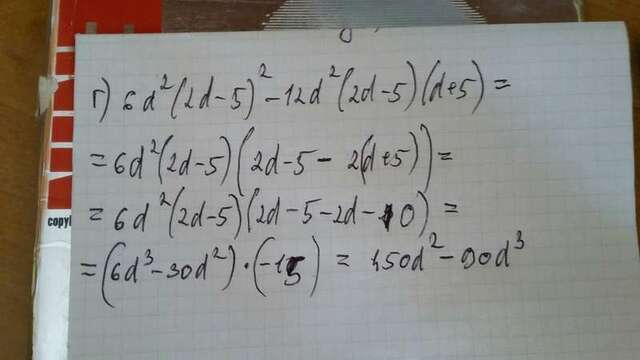 г) 6d²(2d-5)² - 12d²(2d-5)(d+5) =
= 6d²(2d-5)(2d-5 - 2(d+5)) =
copyl
= 6d²(2d-5)(2d-5-2d-10) =
= (6d³-30d²)·(-15) = 450d² - 90d³